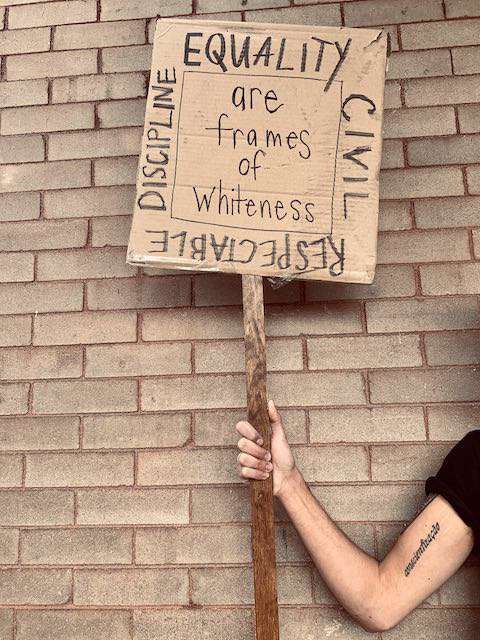 EQUALITY
CIVIL
RESPECTABLE
DISCIPLINE
are
frames
of
Whiteness
conscientização